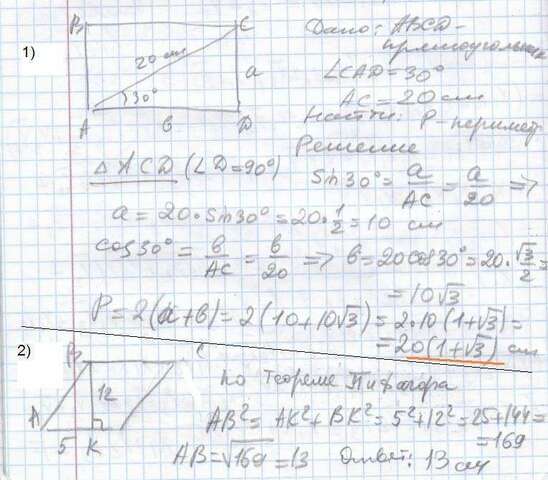 1)
B
C
20 см
a
30°
A
в
D
Дано: ABCD-
прямоугольник
∠CAD=30°
AC=20 см
Найти: P-перимет
Решение
△ ACD (∠D=90°)
sin30°= a/AC = a/20 =>
a = 20·sin30°=20·1/2=10 см
cos30°= в/AC = в/20 => в=20cos30°=20·√3/2=
=10√3
P=2(a+в)=2(10+10√3)=2·10(1+√3)=
=20(1+√3) см
2)
B
C
12
A
5 K
по теореме Пифагора
AB²=AK²+BK²=5²+12²=25+144=
=169
AB=√169=13 Ответ: 13 см